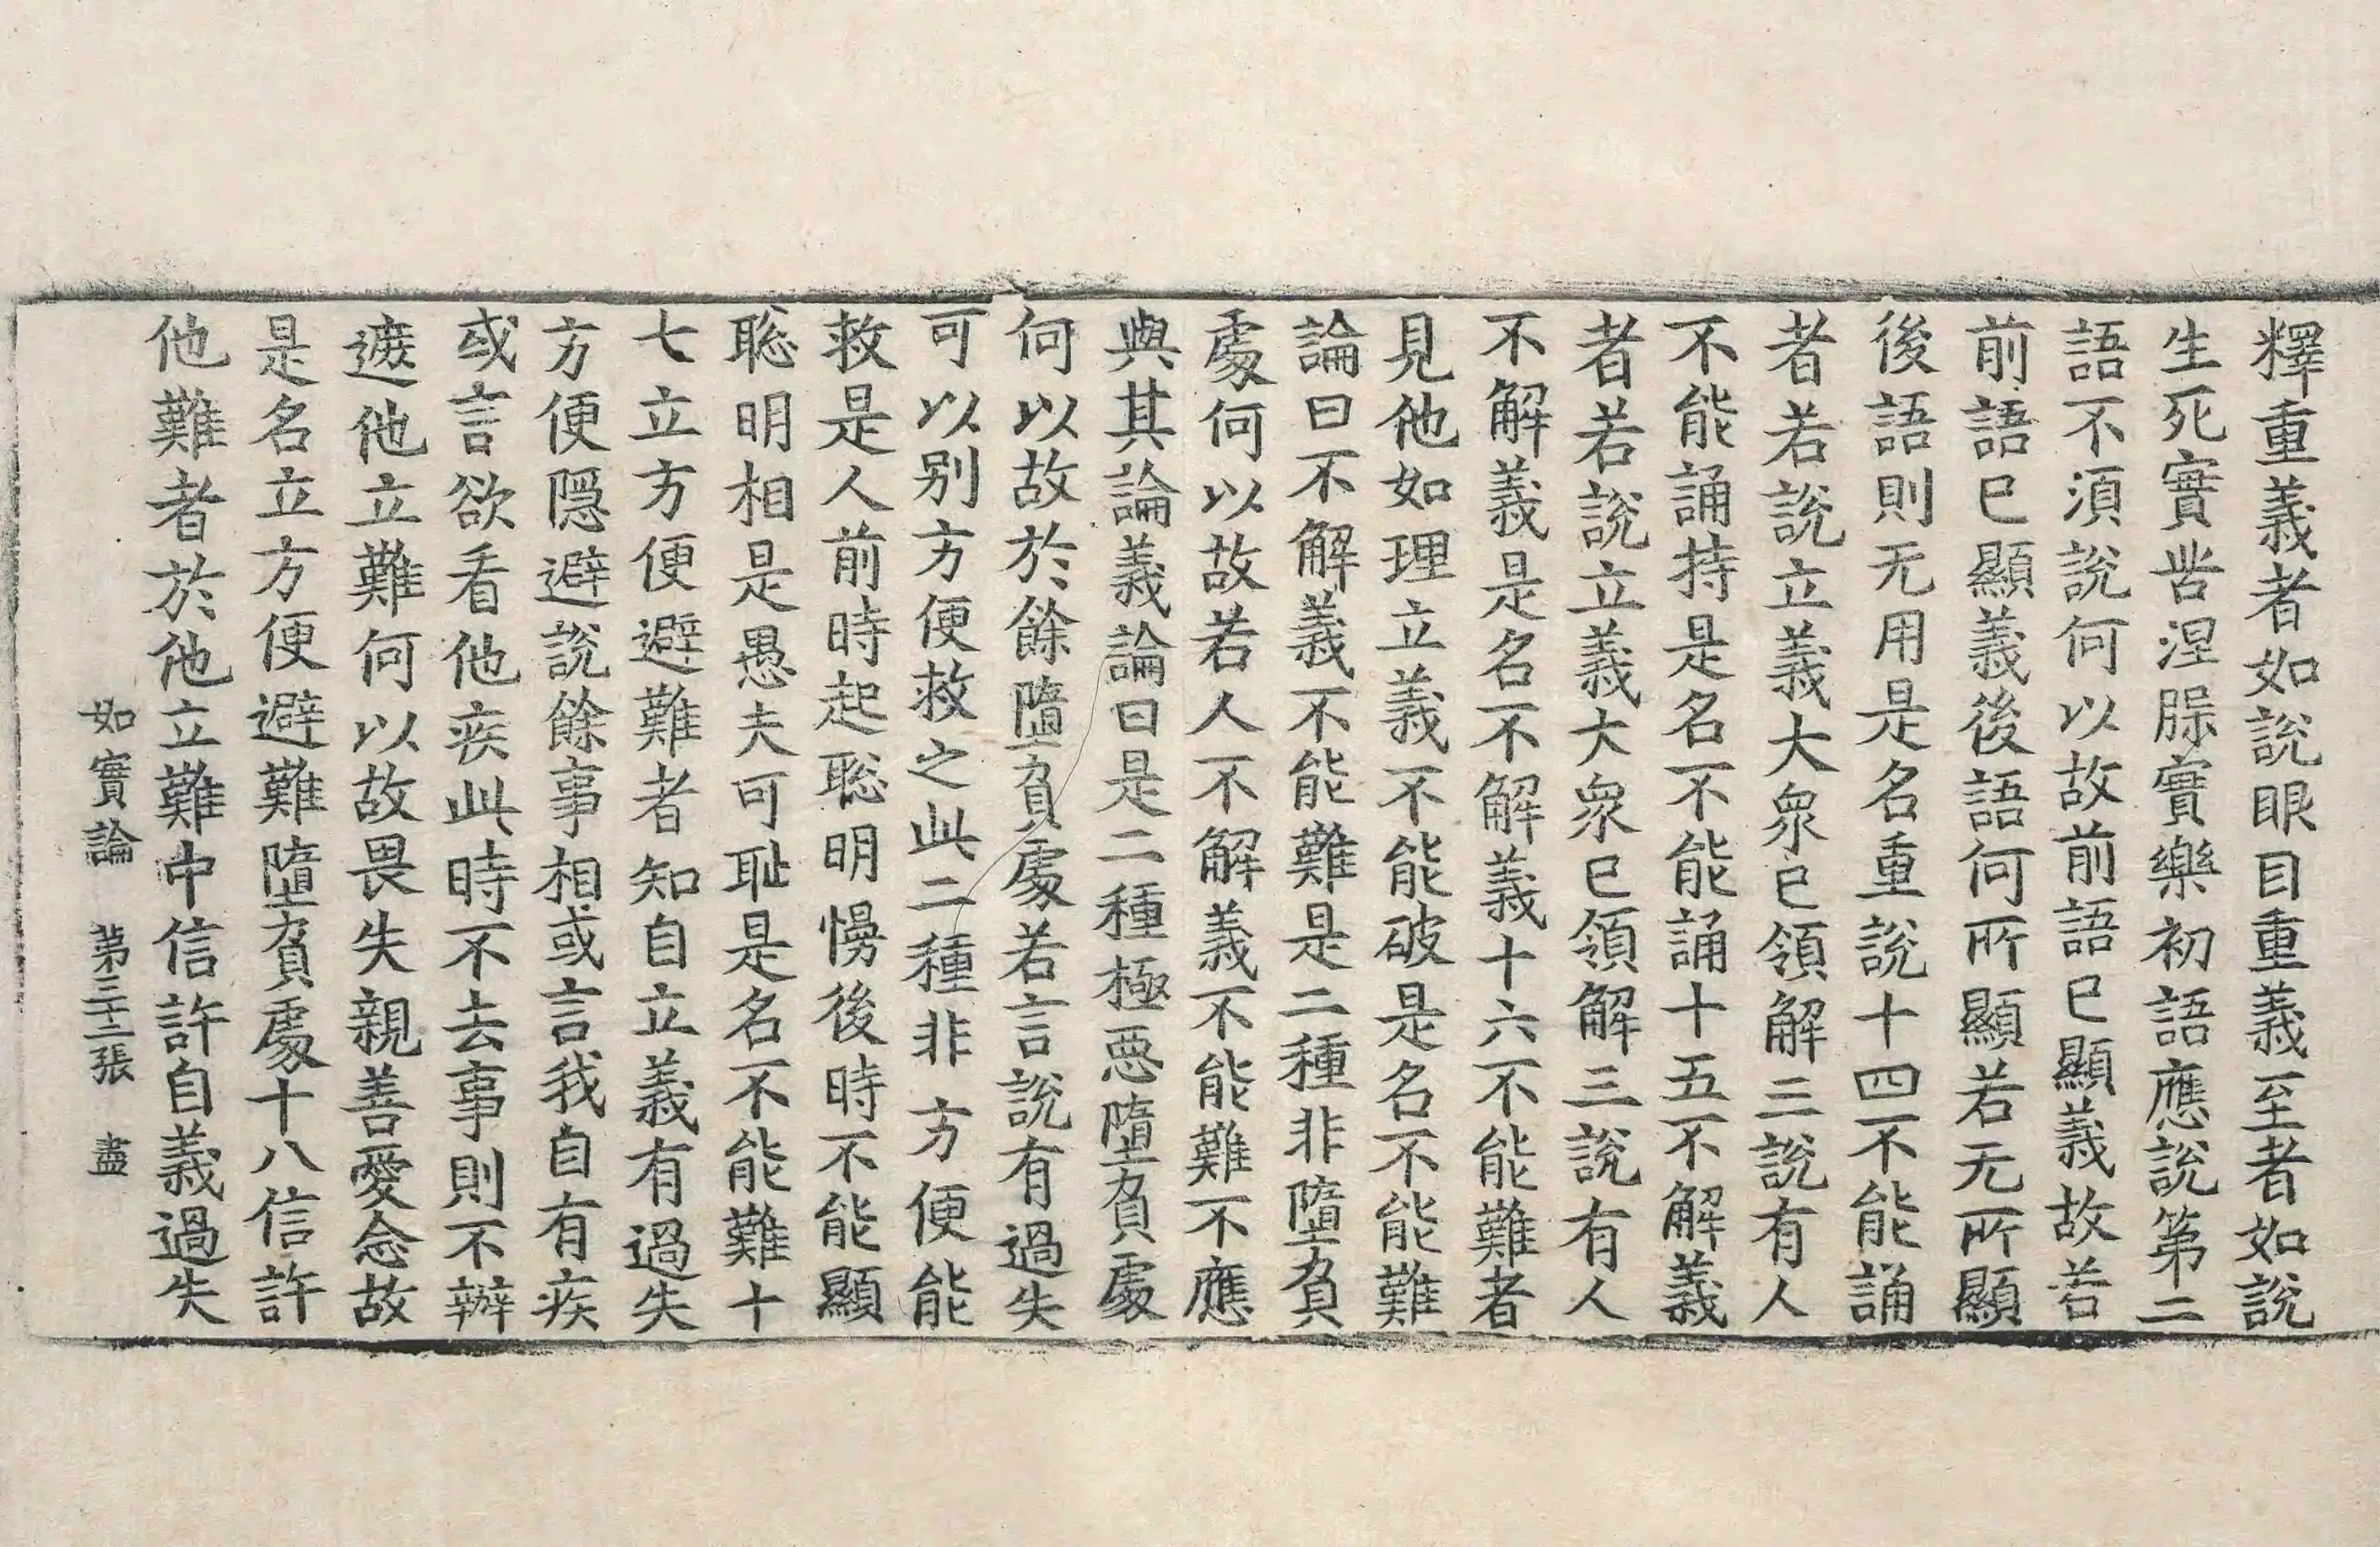 釋重義者如說眼目重義至者如說
生死實苦涅槃實樂初語應說第二
語不須說何以故前語已顯義故若
前語已顯義後語何所顯若无所顯
後語則无用是名重說十四不能誦
者若說立義大衆已領解三說有人
不能誦持是名不能誦十五不解義
者若說立義大衆已領解三說有人
不解義是名不解義十六不能難者
見他如理立義不能破是名不能難
論曰不解義不能難是二種非墮負
處何以故若人不解義不能難不應
與其論義論曰是二種極惡墮負處
何以故於餘墮負處若言說有過失
可以別方便救之此二種非方便能
救是人前時起聡明慢後時不能顯
聡明相是愚夫可耻是名不能難十
七立方便避難者知自立義有過失
方便隱避說餘事相或言我自有疾
或言欲看他疾此時不去事則不辦
遮他立難何以故畏失親善愛念故
是名立方便避難墮負處十八信許
他難者於他立難中信許自義過失
如實論 第三十二張 盡